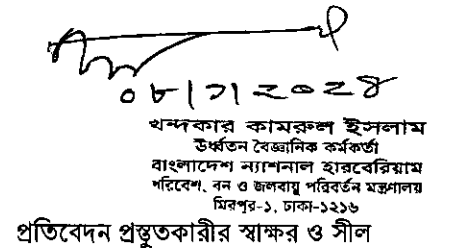 ০৮|১|২০২৪
খন্দকার কামরুল ইসলাম
উর্ধ্বতন বৈজ্ঞানিক কর্মকর্তা
বাংলাদেশ ন্যাশনাল হারবেরিয়াম
পরিবেশ, বন ও জলবায়ু পরিবর্তন মন্ত্রণালয়
মিরপুর-১, ঢাকা-১২১৬
প্রতিবেদন প্রস্তুতকারীর স্বাক্ষর ও সীল